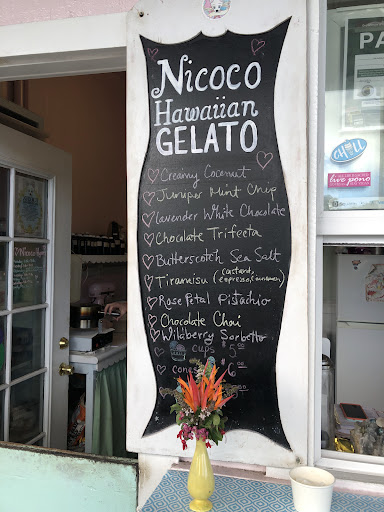 Nicoco
Hawaiian
GELATO
Creamy Coconut
Juniper Mint Chip
lavender White Chocolate
Chocolate Trifecta
Butterscotch Sea Salt
Tiramisu (custard,
espresso, cinnamon)
Rose Petal Pistachio
Chocolate Chai
Wildberry Sorbetto
cups $5
cones $6
PA
CHILL
live pono